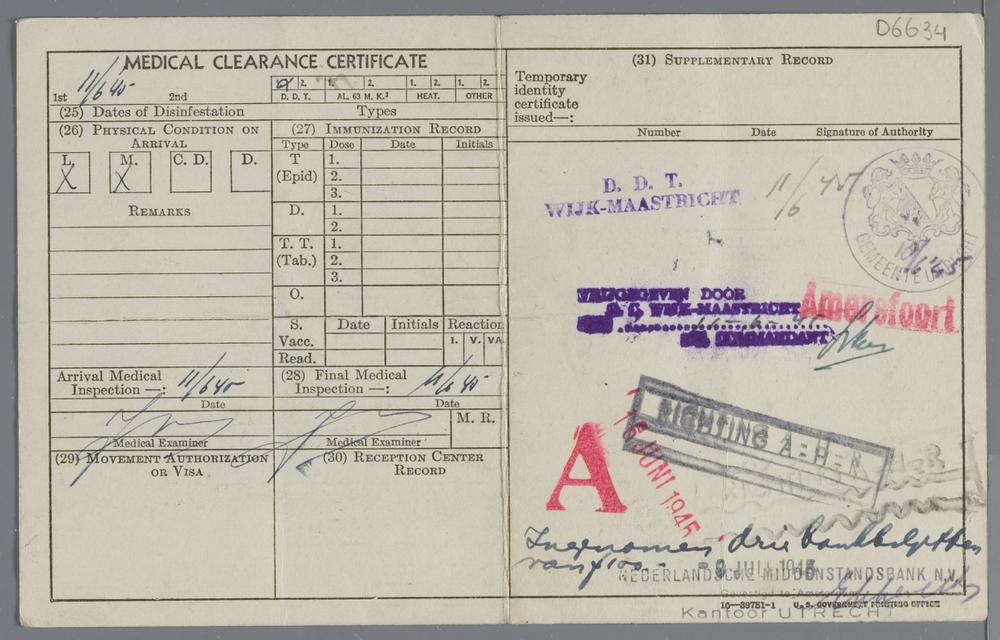 D6634
MEDICAL CLEARANCE CERTIFICATE
11/6 45
1st 2nd
1. 2. 1. 2. 1. 2. 1. 2.
D. D. T. AL. 63 M. K.³ HEAT. OTHER
(25) Dates of Disinfestation Types
(26) Physical Condition on Arrival
L. M. C. D. D.
X X
Remarks
(27) Immunization Record
Type Dose Date Initials
T (Epid) 1.
2.
3.
D. 1.
2.
T. T. (Tab.) 1.
2.
3.
O.
S. Date Initials Reaction
Vacc. I. V. VA
Read.
Arrival Medical Inspection —: 11/6 45
Date
Medical Examiner
(28) Final Medical Inspection —: 11/6 45
Date
M. R.
Medical Examiner
(29) Movement Authorization or Visa
(30) Reception Center Record
(31) Supplementary Record
Temporary
identity
certificate
issued—:
Number Date Signature of Authority
D. D. T.
WIJK-MAASTRICHT
11/6 45
GEMEENTE UTRECHT
VRIJGEGEVEN DOOR
WIJK-MAASTRICHT
COMMANDANT
Amersfoort
RICHTING A=H=R
A
16 JUNI 1945
Ingenomen drie bankbiljetten
van f 100.-
- 9 JULI 1945
NEDERLANDSCHE MIDDENSTANDSBANK N.V.
Gevestigd te Amsterdam
16—39781-1 U. S. GOVERNMENT PRINTING OFFICE
Kantoor UTRECHT